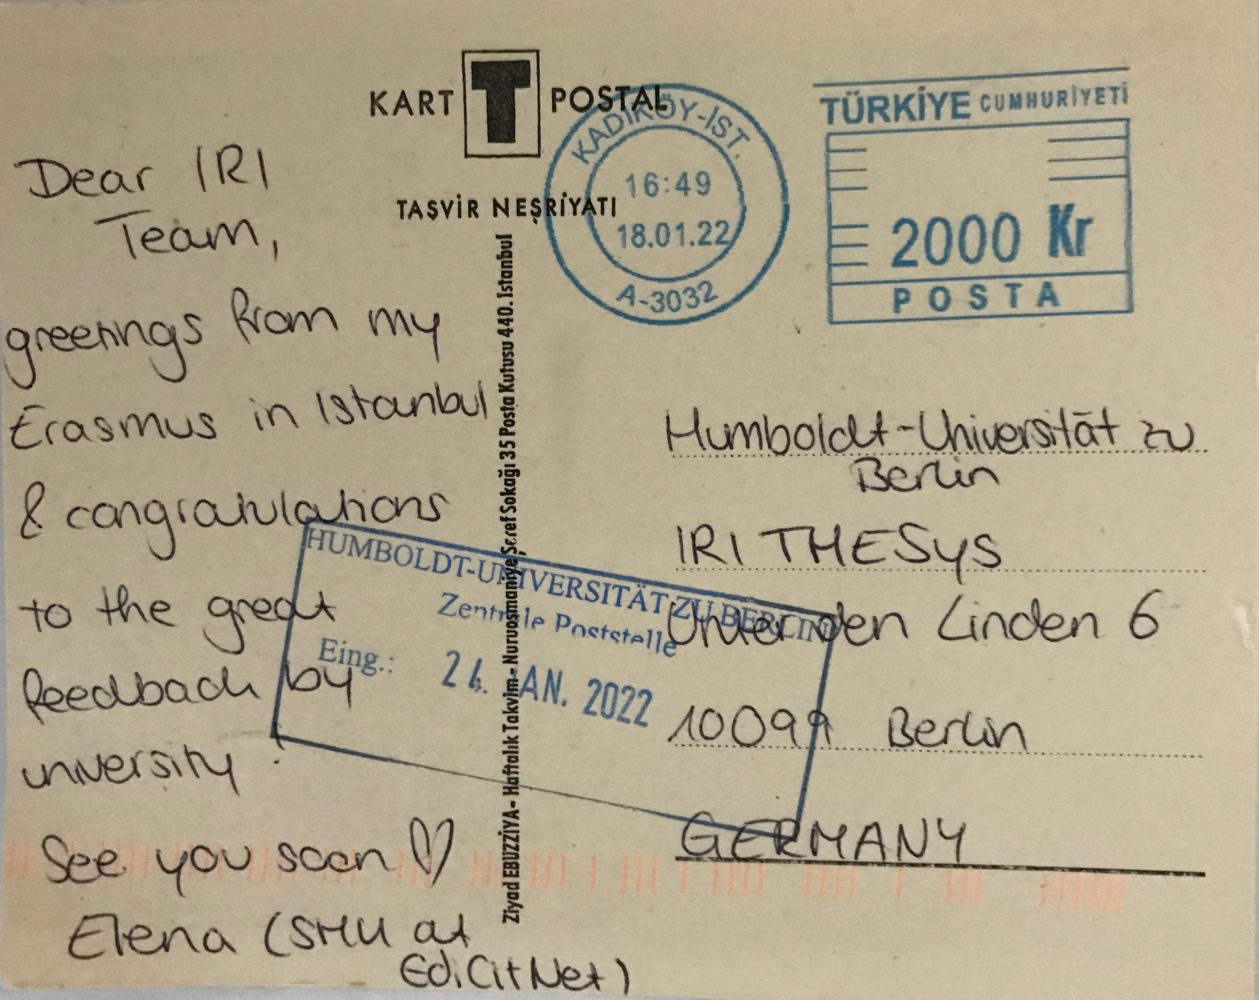 KART T POSTAL
TASVİR NEŞRİYATI
KADIKÖY-İST.
16:49
18.01.22
A-3032
TÜRKİYE CUMHURİYETİ
2000 Kr
POSTA
Dear IRI
Team,
greetings from my
Erasmus in Istanbul
& congratulations
to the great
feedback by
university!
See you soon ♡
Elena (SHU at
EdiCitNet)
Ziyad EBÜZZİYA - Haftalık Takvim - Nuruosmaniye Şeref Sokağı 35 Posta Kutusu 440. İstanbul
Humboldt-Universität zu
Berlin
IRI THESys
Unter den Linden 6
10099 Berlin
GERMANY
HUMBOLDT-UNIVERSITÄT ZU BERLIN
Zentrale Poststelle
Eing.: 24. JAN. 2022